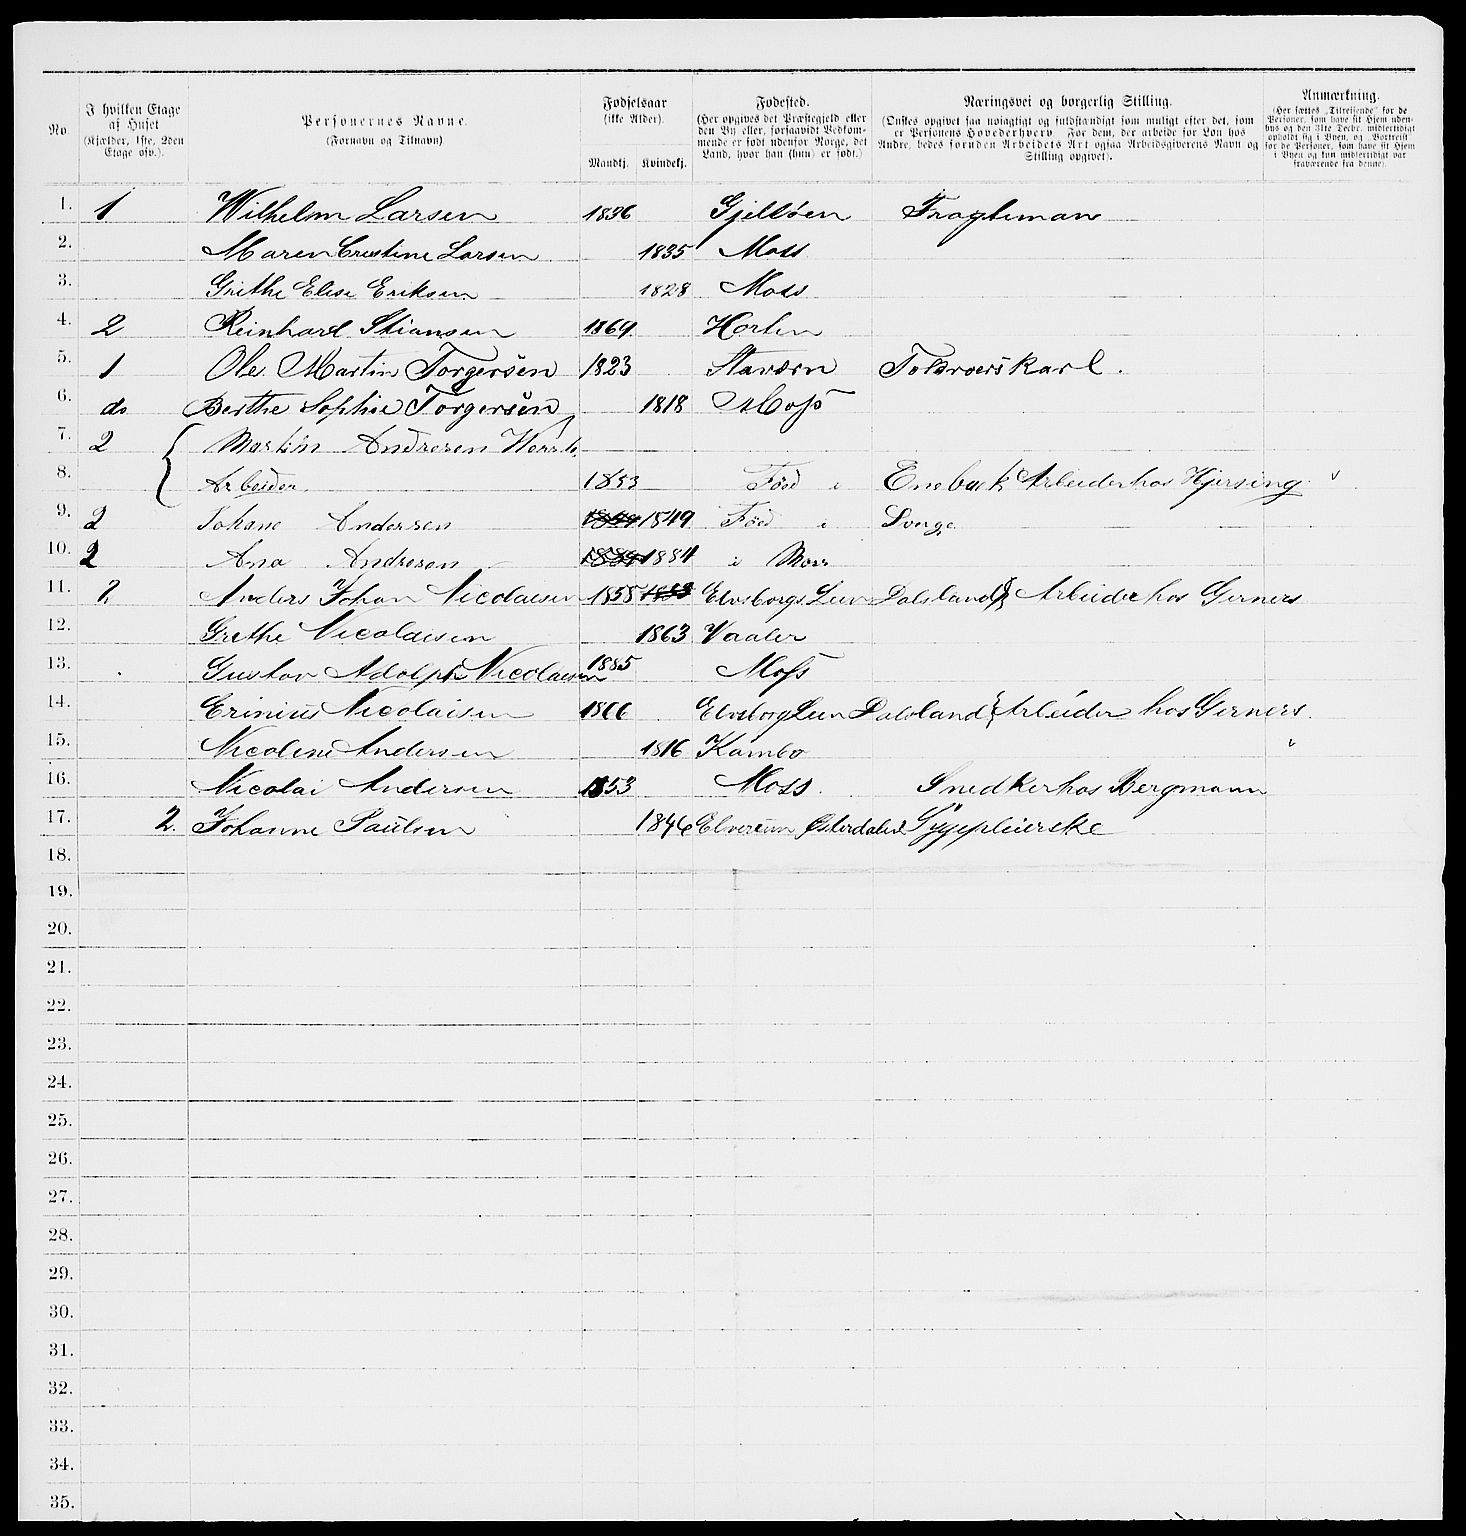 No
I hvilken Etage af Huset (Kjælder, 1ste, 2den Etage osv.).
Personernes Navne. (Fornavn og Tilnavn)
Fødselsaar (ikke Alder). Mandkj. Kvindekj.
Fødested. (Her opgives det Præstegjeld eller den By eller, forsaavidt Vedkommende er født udenfor Norge, det Land, hvor han (hun) er født.)
Næringsvei og borgerlig Stilling. (Ønskes opgivet saa nøiagtigt og fuldstændigt som muligt efter det, som er Personens Hovederhverv. For dem, der arbeide for Løn hos Andre, bedes foruden Arbeidets Art ogsaa Arbeidsgiverens Navn og Stilling opgivet).
Anmærkning. (Her sættes „Tilreisende“ for de Personer, som have sit Hjem udenbys og den 31te Decbr. midlertidigt opholdt sig i Byen, og „Bortreist“ for de Personer, som have sit Hjem i Byen og kun midlertidigt var fraværende fra denne).
1. 1 Wilhelm Larsen 1836 Gjelløen Fragteman
2. Maren Crestine Larsen 1835 Moss
3. Grithe Elise Eriksen 1828 Moss
4. 2 Reinhard Stiansen 1869 Horten
5. 1 Ole Martin Torgersen 1823 Stavern Toldroerskarl.
6. do Berthe Sophie Torgersen 1818 Moss
7. 2 Martin Andresen
8. Arbeider 1853 Föd i Enebak Arbeider hos Hjersing
9. 2 Johane Andersen 1849 Föd i Sverge
10. 2 Ana Andresen 1884 i Moss
11. 2 Anders Johan Nicolaisen 1858 Elvsborgs Leen Dalsland Arbeider hos Gerners
12. Grethe Nicolaisen 1863 Vaaler
13. Gustav Adolph Nicolaisen 1885 Moss
14. Erinius Nicolaisen 1866 Elvsborg Leen Dalsland Arbeider hos Gerners.
15. Nicoline Andersen 1816 Kambo
16. Nicolai Andersen 1853 Moss. Snedker hos Bergmann
17. 2. Johanne Paulsen 1846 Elverum Østerdalen Sygepleierske
18.
19.
20.
21.
22.
23.
24.
25.
26.
27.
28.
29.
30.
31.
32.
33.
34.
35.